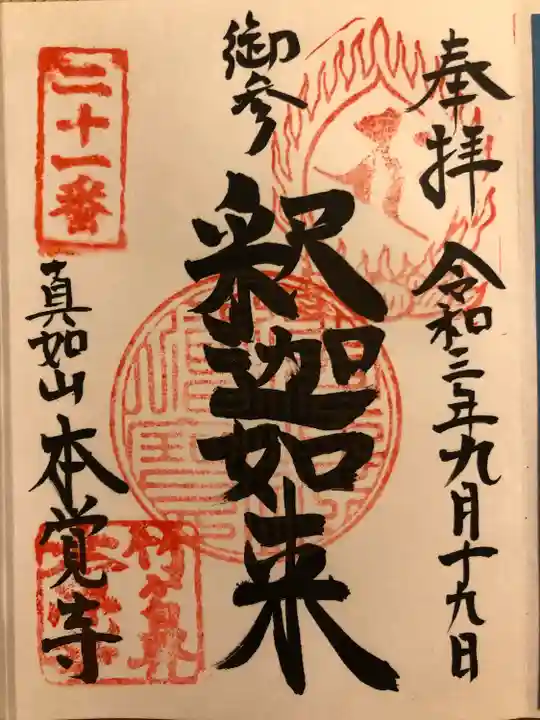 奉拝
令和三年九月十九日
御参
釈迦如来
二十一番
真如山
本覚寺